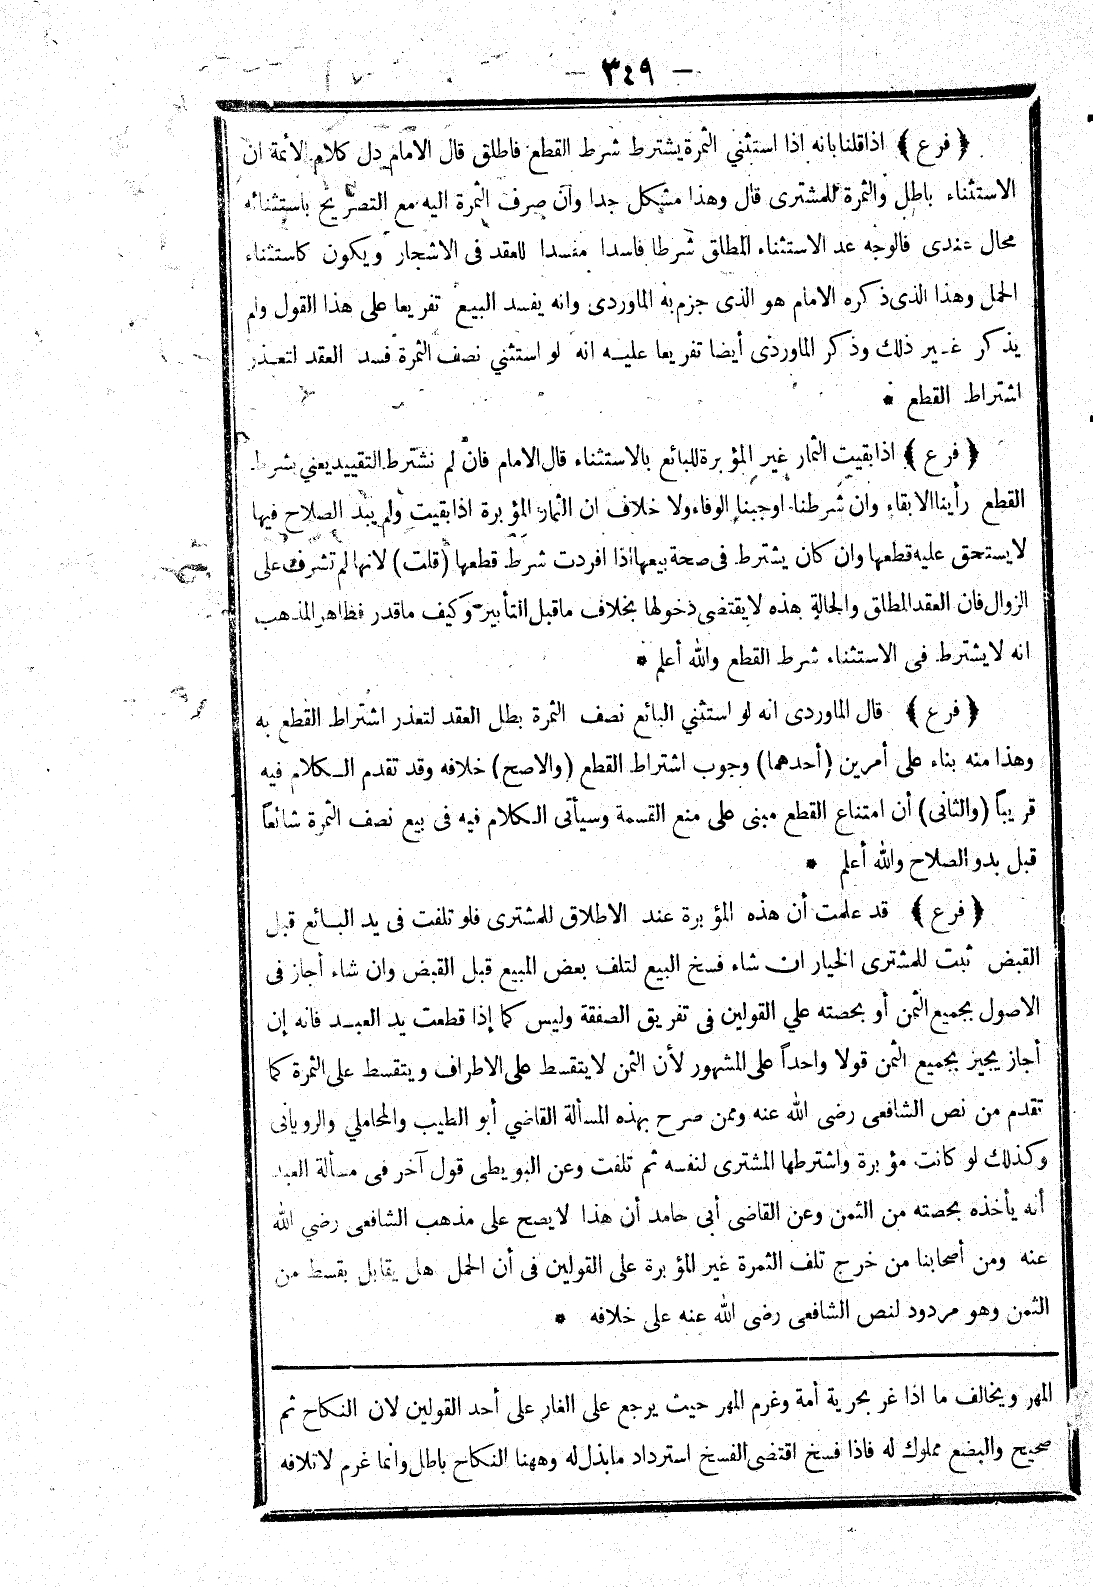 – ٣٤٩ –
﴿ فرع ﴾ اذا قلنا بانه اذا استثني الثمرة يشترط شرط القطع فاطلق قال الامام دل كلام الأئمة ان
الاستثناء باطل والثمرة للمشترى قال وهذا مشكل جدا وان صرف الثمرة اليه مع التصريح باستثنائه
محال عندى فالوجه عد الاستثناء المطلق شرطا فاسدا مفسدا للعقد فى الاشجار ويكون كاستثناء
الحمل وهذا الذى ذكره الامام هو الذى جزم به الماوردى وانه يفسد البيع تفريعا على هذا القول ولم
يذكر غير ذلك وذكر الماوردى أيضا تفريعا عليه انه لو استثني نصف الثمرة فسد العقد لتعذر
اشتراط القطع *
﴿ فرع ﴾ اذا بقيت الثمار غير المؤبرة للبائع بالاستثناء قال الامام فان لم نشترط التقييد يعني بشرط
القطع رأينا الابقاء وان شرطنا اوجبنا الوفاء ولا خلاف ان الثمار المؤبرة اذا بقيت ولم يبد الصلاح فيها
لا يستحق عليه قطعها وان كان يشترط فى صحة بيعها اذا افردت شرط قطعها (قلت) لانها لم تشرف على
الزوال فان العقد المطلق والحالة هذه لا يقتضى دخولها بخلاف ما قبل التأبير وكيف ما قدر فظاهر المذهب
انه لا يشترط فى الاستثناء شرط القطع والله أعلم *
﴿ فرع ﴾ قال الماوردى انه لو استثني البائع نصف الثمرة بطل العقد لتعذر اشتراط القطع به
وهذا منه بناء على أمرين (أحدهما) وجوب اشتراط القطع (والاصح) خلافه وقد تقدم الكلام فيه
قريباً (والثانى) أن امتناع القطع مبنى على منع القسمة وسيأتى الكلام فيه فى بيع نصف الثمرة شائعاً
قبل بدو الصلاح والله أعلم *
﴿ فرع ﴾ قد علمت أن هذه المؤبرة عند الاطلاق للمشترى فلو تلفت فى يد البائع قبل
القبض ثبت للمشترى الخيار ان شاء فسخ البيع لتلف بعض المبيع قبل القبض وان شاء أجاز فى
الاصول بجميع الثمن أو بحصته علي القولين فى تفريق الصفقة وليس كما إذا قطعت يد العبد فانه إن
أجاز يجيز بجميع الثمن قولا واحداً على المشهور لأن الثمن لا يتقسط على الاطراف ويتقسط على الثمرة كما
تقدم من نص الشافعى رضى الله عنه وممن صرح بهذه المسألة القاضي أبو الطيب والمحاملي والرويانى
وكذلك لو كانت مؤبرة واشترطها المشترى لنفسه ثم تلفت وعن البويطى قول آخر فى مسألة العبد
أنه يأخذه بحصته من الثمن وعن القاضى أبى حامد أن هذا لا يصح على مذهب الشافعى رضي الله
عنه ومن أصحابنا من خرج تلف الثمرة غير المؤبرة على القولين فى أن الحمل هل يقابل بقسط من
الثمن وهو مردود لنص الشافعى رضى الله عنه على خلافه *
المهر ويخالف ما اذا غر بحرية أمة وغرم المهر حيث يرجع على الغار على أحد القولين لان النكاح ثم
صحيح والبضع مملوك له فاذا فسخ اقتضى الفسخ استرداد ما بذل له وههنا النكاح باطل وانما غرم لاتلافه